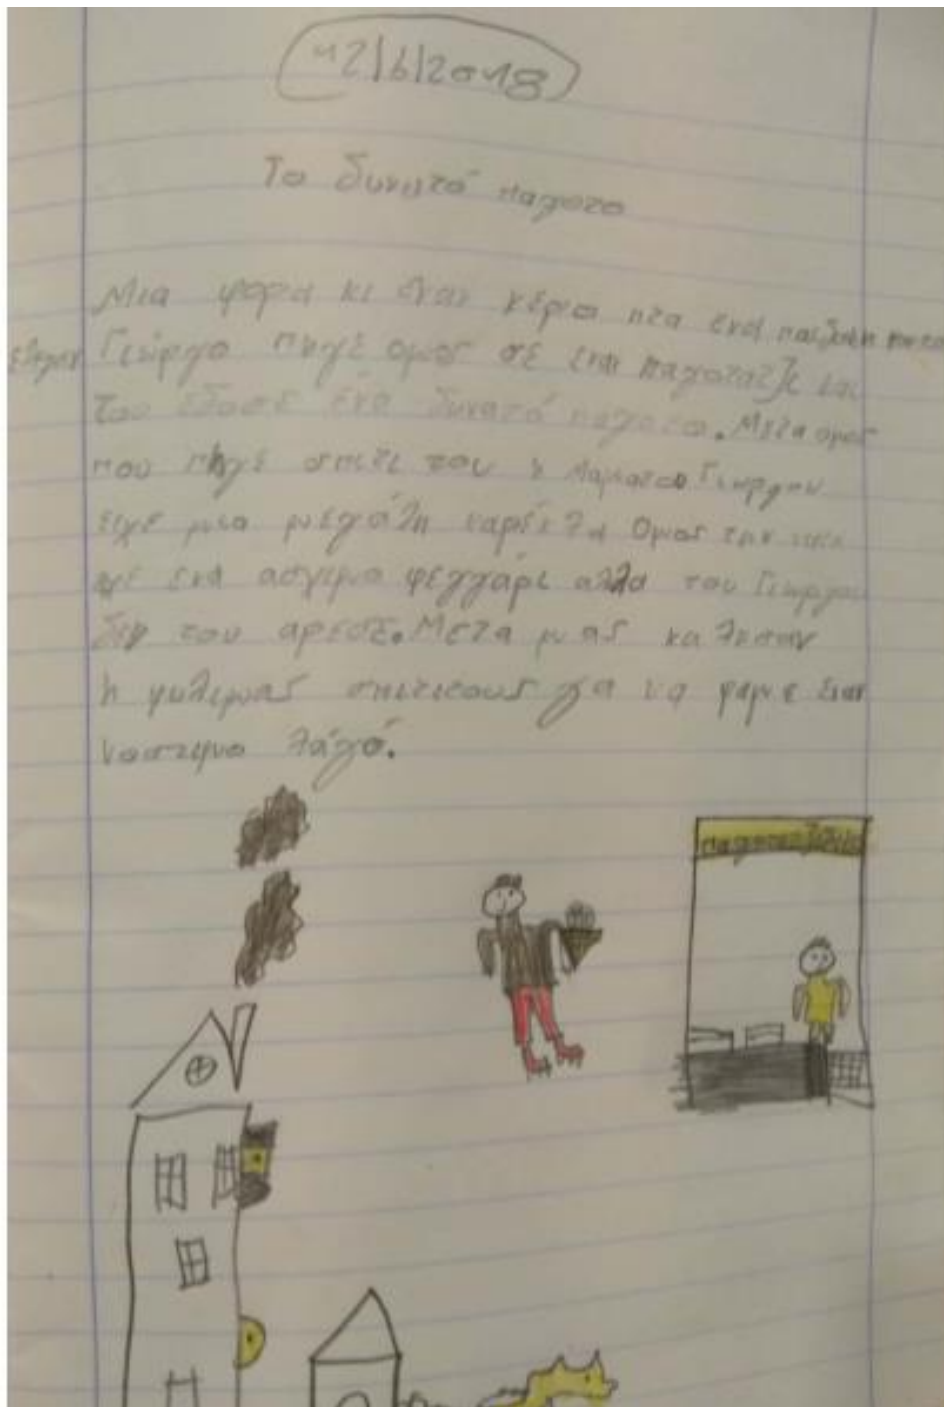 12/6/2018
Το δυνατό παγοτο
Μια φορα κι εναν κερο ητα ενα παιδακι που το
ελεγαν Γιώργο πηγε ομος σε ενα παγοτατζι και
του εδοσε ένα δυνατό παγοτο. Μετα ομος
που πηγε σπιτι του η μαματου Γιωργου
ειχε μια μεγάλη καρδελα Ομος την
με ενα ασχιμο φεγγάρι αλλα του Γιωργου
δεν του αρεσε. Μετα μας καλεσαν
η φιλεμας σπιτιτους γα να φαμε εναν
νοστιμο λαγό.